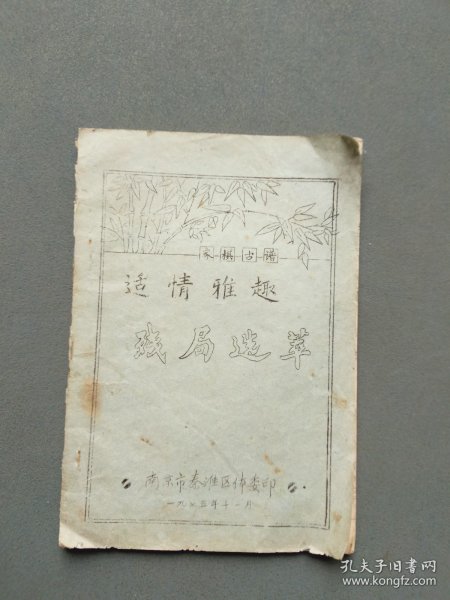 象棋古谱
适情雅趣
残局选萃
南京市秦淮区体委印
一九七五年十一月
孔夫子旧书网
www.kongfz.com